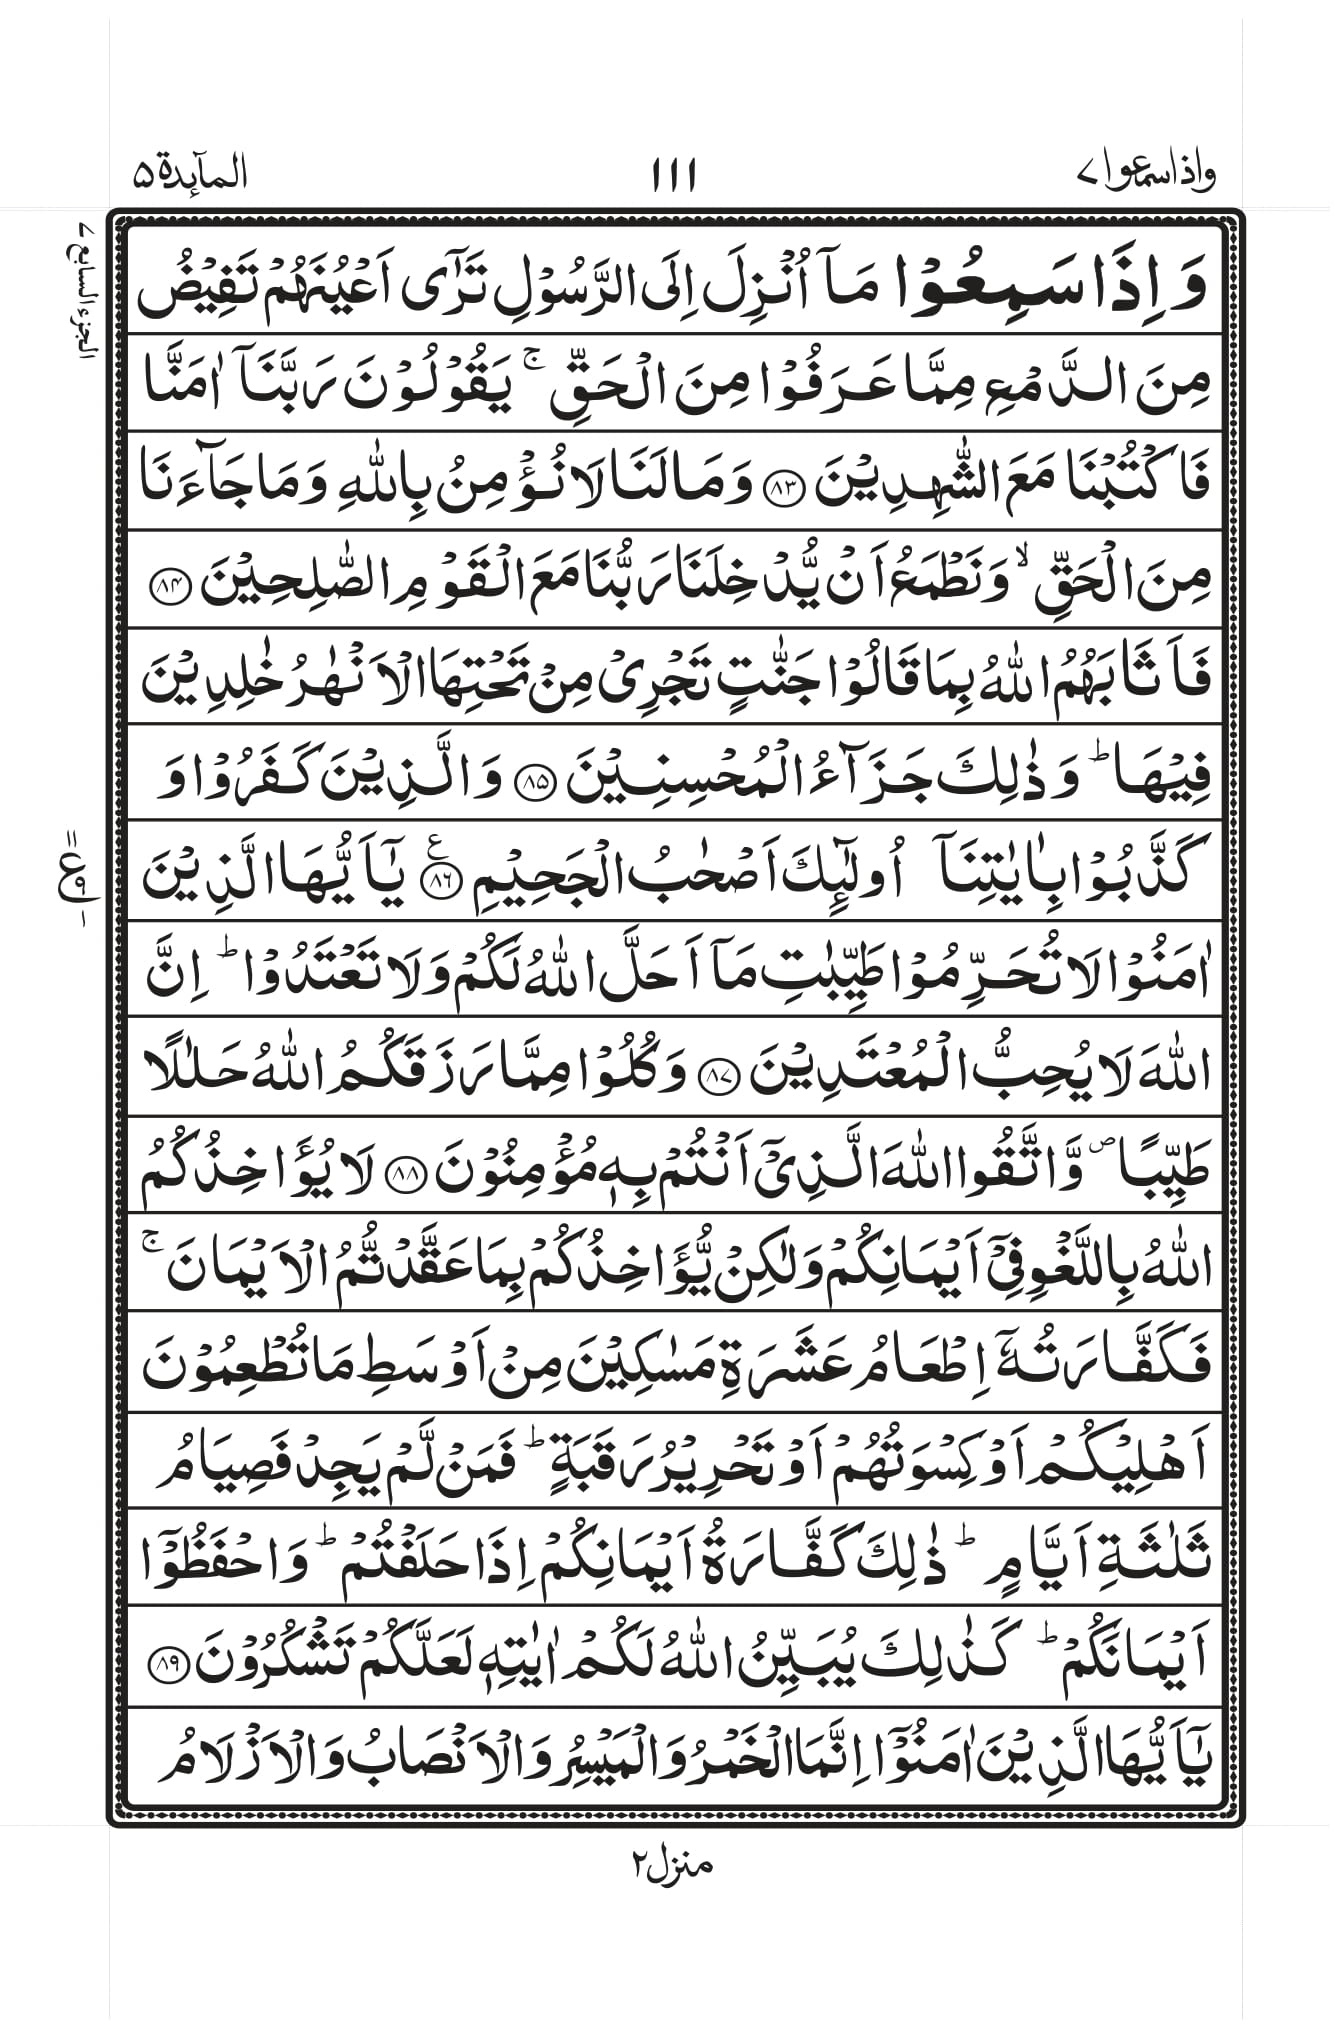 واذاسمعوا ٧
١١١
المآىِٕدة ٥
الجزء السابع ٧
وَ اِذَا سَمِعُوۡا مَاۤ اُنۡزِلَ اِلَى الرَّسُوۡلِ تَرٰٓى اَعۡيُنَهُمۡ تَفِيۡضُ
مِنَ الدَّمۡعِ مِمَّا عَرَفُوۡا مِنَ الۡحَقِّ ۚ يَقُوۡلُوۡنَ رَبَّنَاۤ اٰمَنَّا
فَاكۡتُبۡنَا مَعَ الشّٰهِدِيۡنَ ﴿۸۳﴾ وَمَا لَنَا لَا نُؤۡمِنُ بِاللّٰهِ وَمَا جَآءَنَا
مِنَ الۡحَقِّ ۙ وَنَطۡمَعُ اَنۡ يُّدۡخِلَنَا رَبُّنَا مَعَ الۡقَوۡمِ الصّٰلِحِيۡنَ ﴿۸۴﴾
فَاَثَابَهُمُ اللّٰهُ بِمَا قَالُوۡا جَنّٰتٍ تَجۡرِىۡ مِنۡ تَحۡتِهَا الۡاَنۡهٰرُ خٰلِدِيۡنَ
فِيۡهَا ؕ وَذٰلِكَ جَزَآءُ الۡمُحۡسِنِيۡنَ ﴿۸۵﴾ وَالَّذِيۡنَ كَفَرُوۡا وَ
كَذَّبُوۡا بِاٰيٰتِنَاۤ اُولٰٓىِٕكَ اَصۡحٰبُ الۡجَحِيۡمِ ﴿۸۶﴾ ع يٰۤاَيُّهَا الَّذِيۡنَ
اٰمَنُوۡا لَا تُحَرِّمُوۡا طَيِّبٰتِ مَاۤ اَحَلَّ اللّٰهُ لَكُمۡ وَلَا تَعۡتَدُوۡا ؕ اِنَّ
اللّٰهَ لَا يُحِبُّ الۡمُعۡتَدِيۡنَ ﴿۸۷﴾ وَكُلُوۡا مِمَّا رَزَقَكُمُ اللّٰهُ حَلٰلًا
طَيِّبًا ۖ وَّاتَّقُوا اللّٰهَ الَّذِىۡۤ اَنۡتُمۡ بِهٖ مُؤۡمِنُوۡنَ ﴿۸۸﴾ لَا يُؤَاخِذُكُمُ
اللّٰهُ بِاللَّغۡوِ فِىۡۤ اَيۡمَانِكُمۡ وَلٰكِنۡ يُّؤَاخِذُكُمۡ بِمَا عَقَّدْتُّمُ الۡاَيۡمَانَ ۚ
فَكَفَّارَتُهٗۤ اِطۡعَامُ عَشَرَةِ مَسٰكِيۡنَ مِنۡ اَوۡسَطِ مَا تُطۡعِمُوۡنَ
اَهۡلِيۡكُمۡ اَوۡ كِسۡوَتُهُمۡ اَوۡ تَحۡرِيۡرُ رَقَبَةٍ ؕ فَمَنۡ لَّمۡ يَجِدۡ فَصِيَامُ
ثَلٰثَةِ اَيَّامٍ ؕ ذٰلِكَ كَفَّارَةُ اَيۡمَانِكُمۡ اِذَا حَلَفۡتُمۡ ؕ وَاحۡفَظُوۡۤا
اَيۡمَانَكُمۡ ؕ كَذٰلِكَ يُبَيِّنُ اللّٰهُ لَكُمۡ اٰيٰتِهٖ لَعَلَّكُمۡ تَشۡكُرُوۡنَ ﴿۸۹﴾
يٰۤاَيُّهَا الَّذِيۡنَ اٰمَنُوۡۤا اِنَّمَا الۡخَمۡرُ وَالۡمَيۡسِرُ وَالۡاَنۡصَابُ وَالۡاَزۡلَامُ
منزل ٢